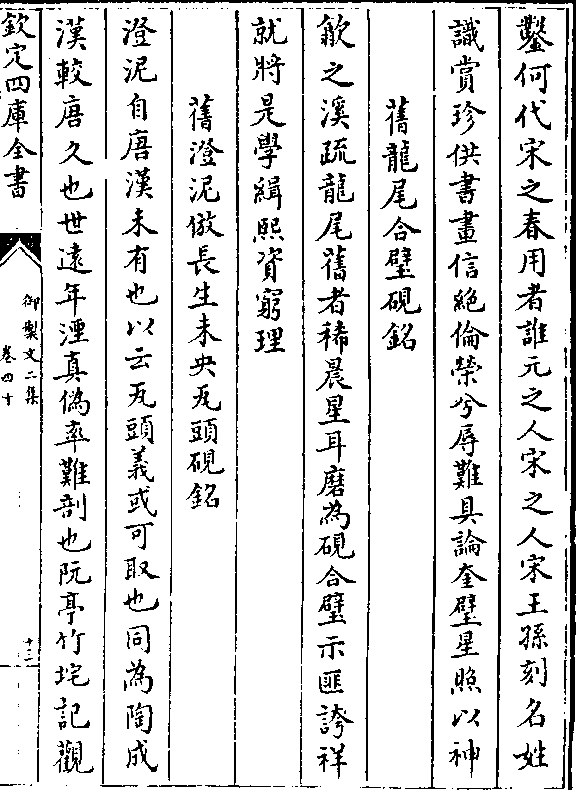 鑿何代宋之春用者誰元之人宋之人宋王孫刻名姓
識賞珍供書畫信絕倫榮兮辱難具論奎璧星照以神
舊龍尾合璧硯銘
歙之溪疏龍尾舊者稀晨星耳磨為硯合璧示匪誇祥
就將是學緝熙資窮理
舊澄泥倣長生未央瓦頭硯銘
澄泥自唐漢未有也以云瓦頭義或可取也同為陶成
漢較唐久也世遠年湮真偽率難剖也阮亭竹垞記觀
欽定四庫全書
御製文二集
卷四十
十三